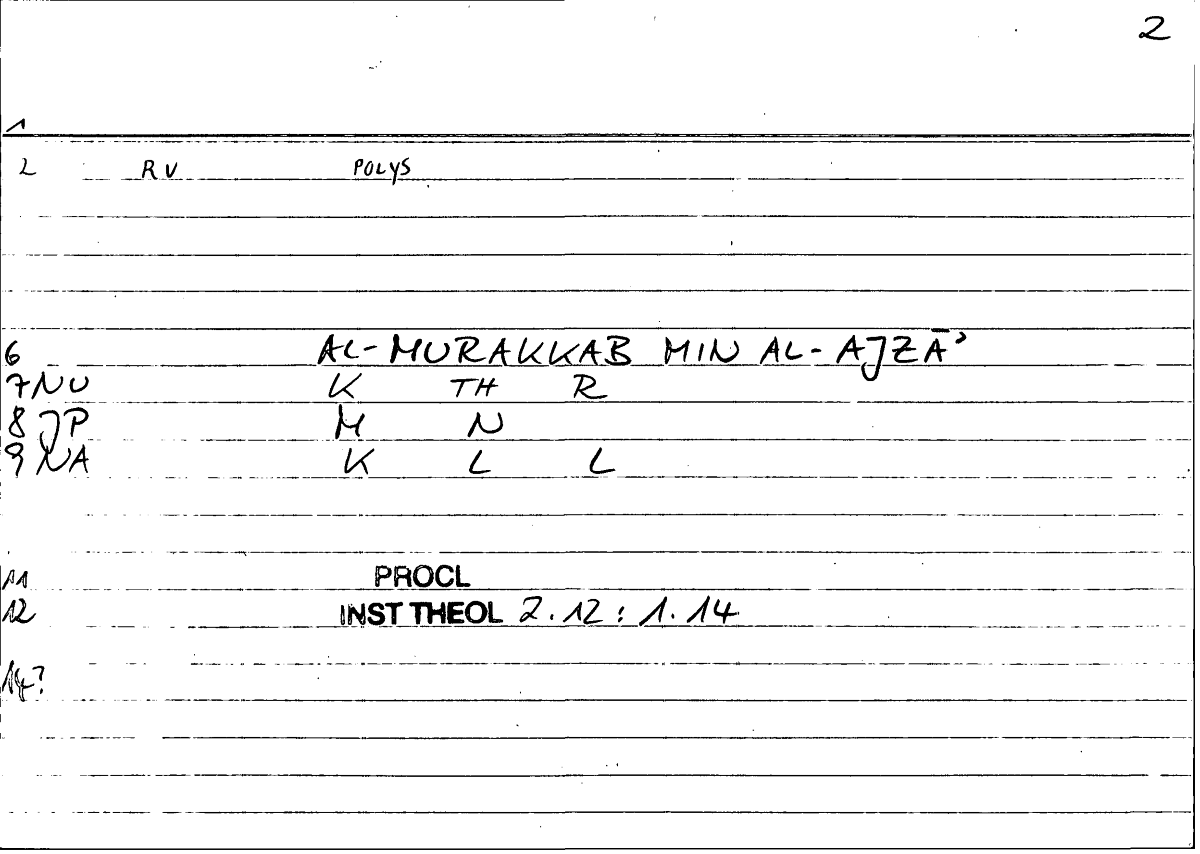 2
1
2 RV POLYS
6 AL-MURAKKAB MIN AL-AJZĀʾ
7 NU K TH R
8 JP M N
9 NA K L L
11 PROCL
12 INST THEOL 2.12 : 1.14
14?